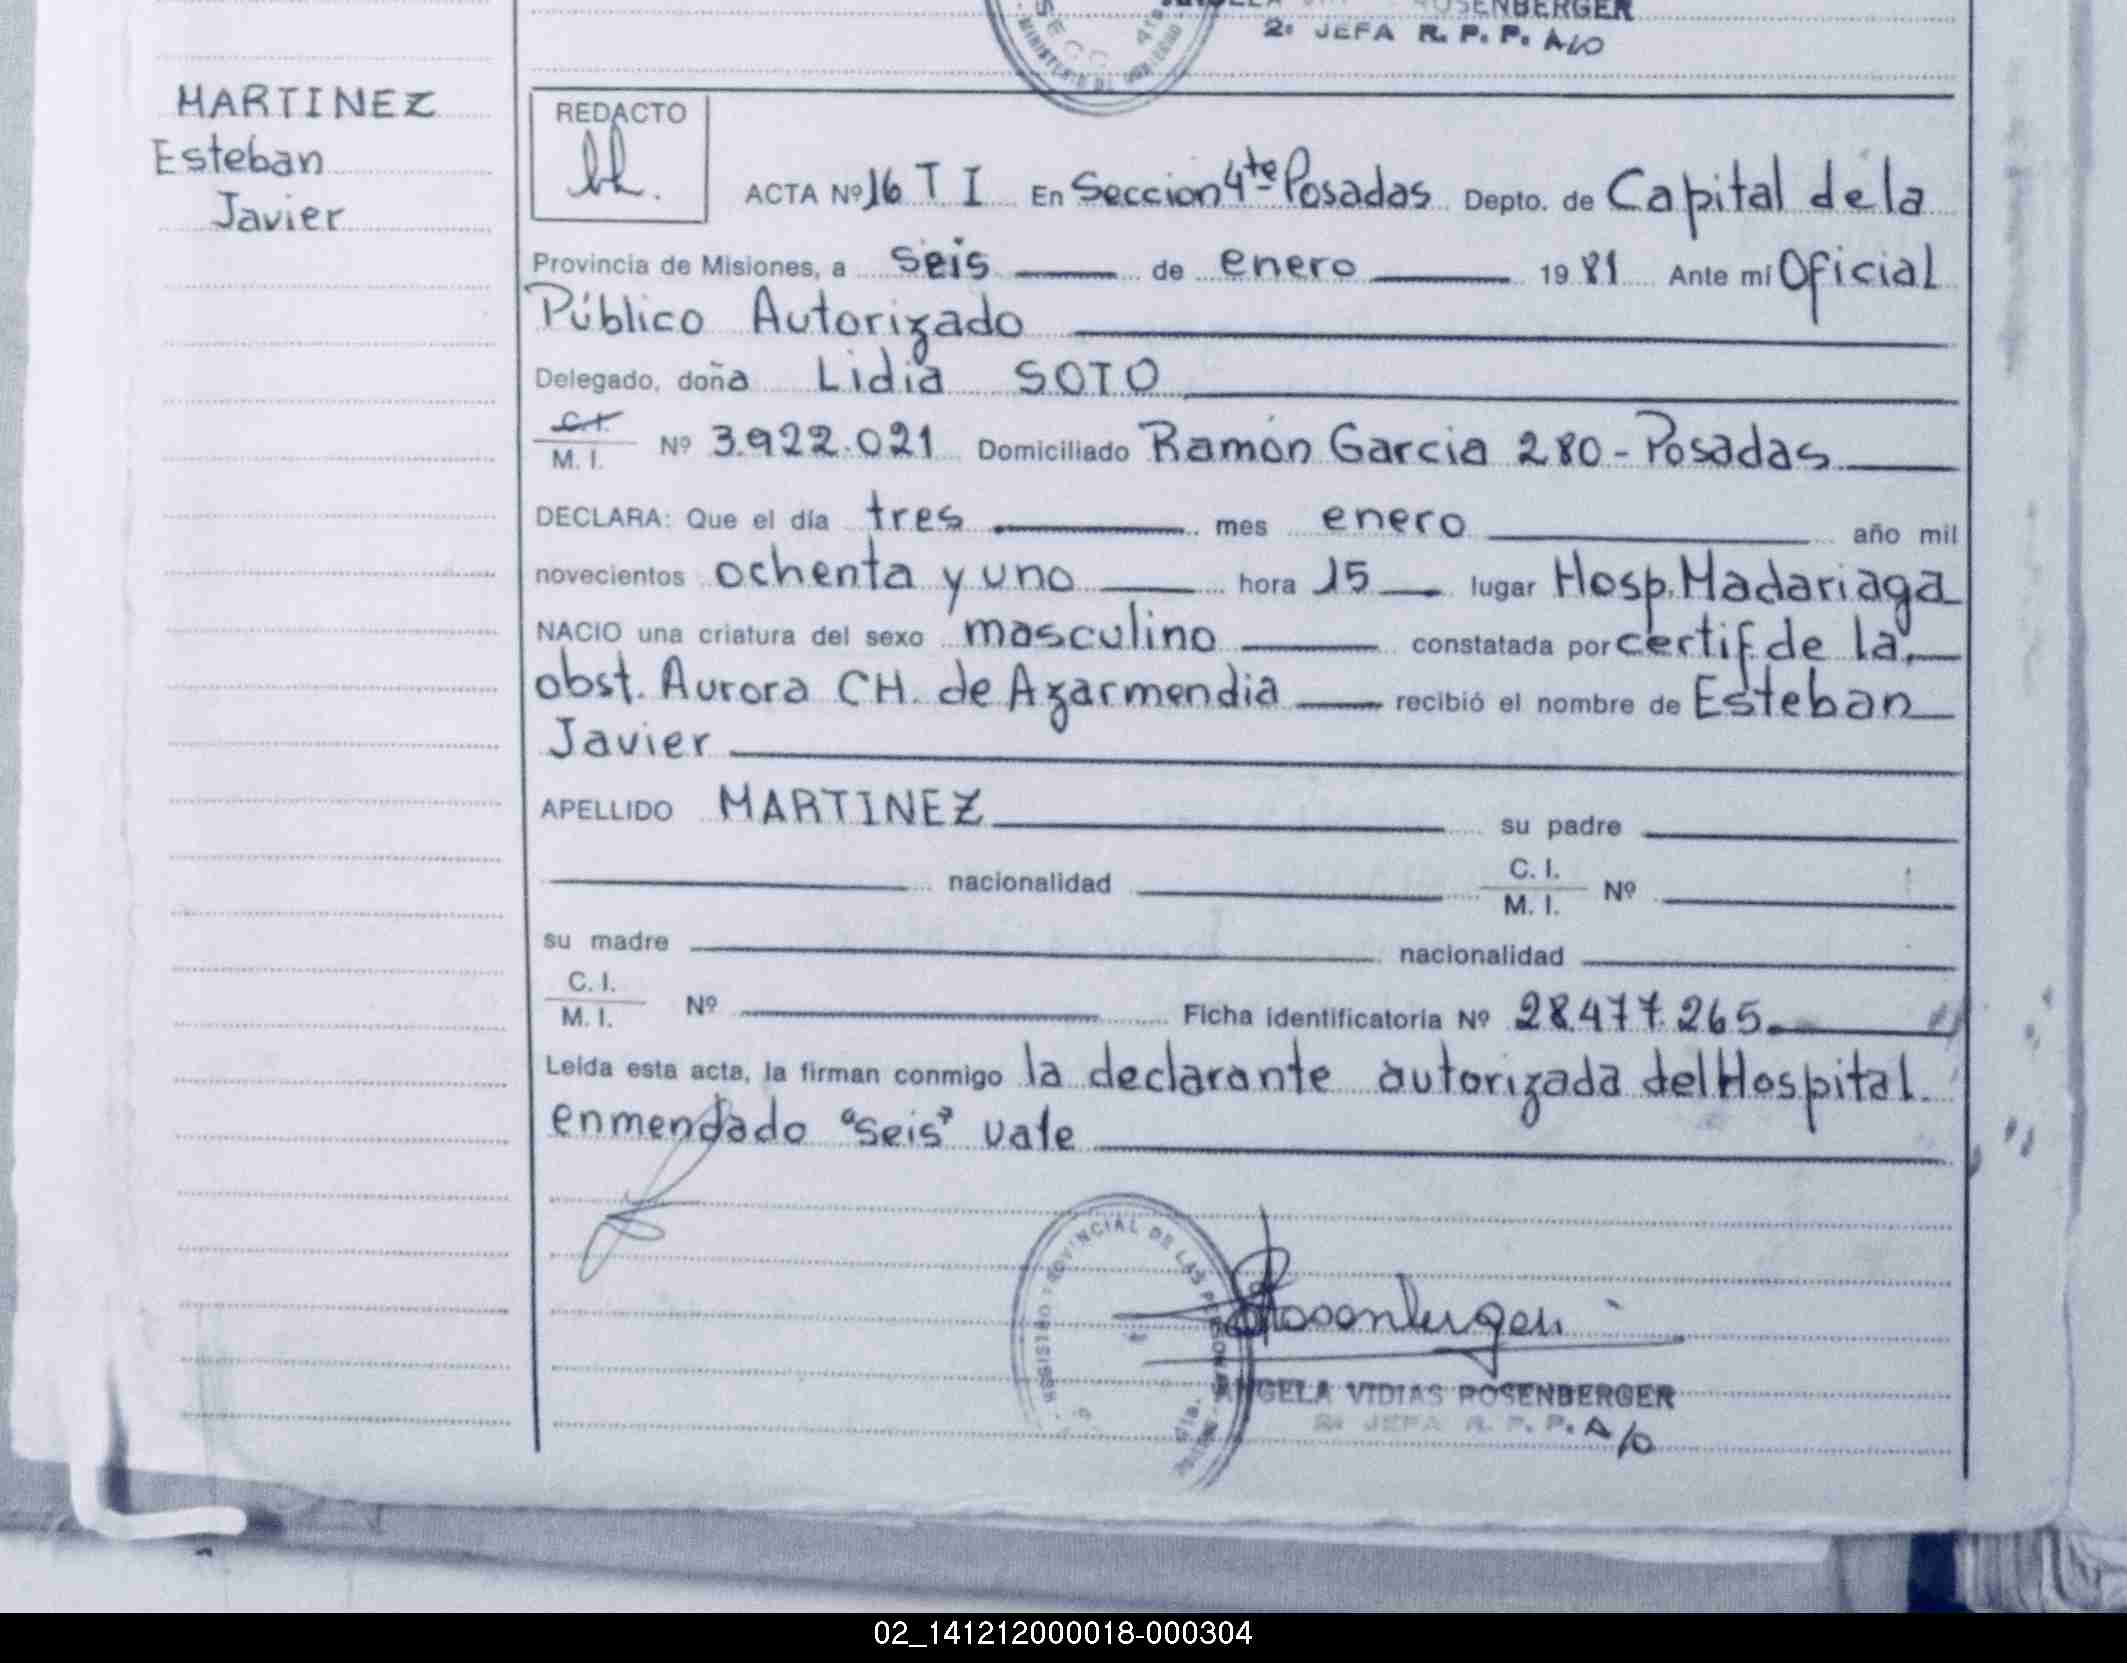 ROSENBERGER
2: JEFA R. P. P. A/O
MARTINEZ
Esteban
Javier
REDACTO
ACTA Nº 16 T I En Seccion 4te Posadas Depto. de Capital de la
Provincia de Misiones, a seis de enero 1981 Ante mi Oficial
Público Autorizado
Delegado, doña Lidia SOTO
C.I.
M. I. Nº 3.922.021 Domiciliado Ramón Garcia 280 - Posadas
DECLARA: Que el día tres mes enero año mil
novecientos ochenta y uno hora 15 lugar Hosp. Madariaga
NACIO una criatura del sexo masculino constatada por certif. de la
obst. Aurora CH. de Azarmendia recibió el nombre de Esteban
Javier
APELLIDO MARTINEZ su padre
nacionalidad C. I.
M. I. Nº
su madre nacionalidad
C. I.
M. I. Nº Ficha identificatoria Nº 28.477.265
Leída esta acta, la firman conmigo la declarante autorizada del Hospital.
enmendado "seis" vale
REGISTRO PROVINCIAL DE LAS PERSONAS
Rosenberger
ANGELA VIDIAS ROSENBERGER
2: JEFA R. P. P. A/O
02_141212000018-000304